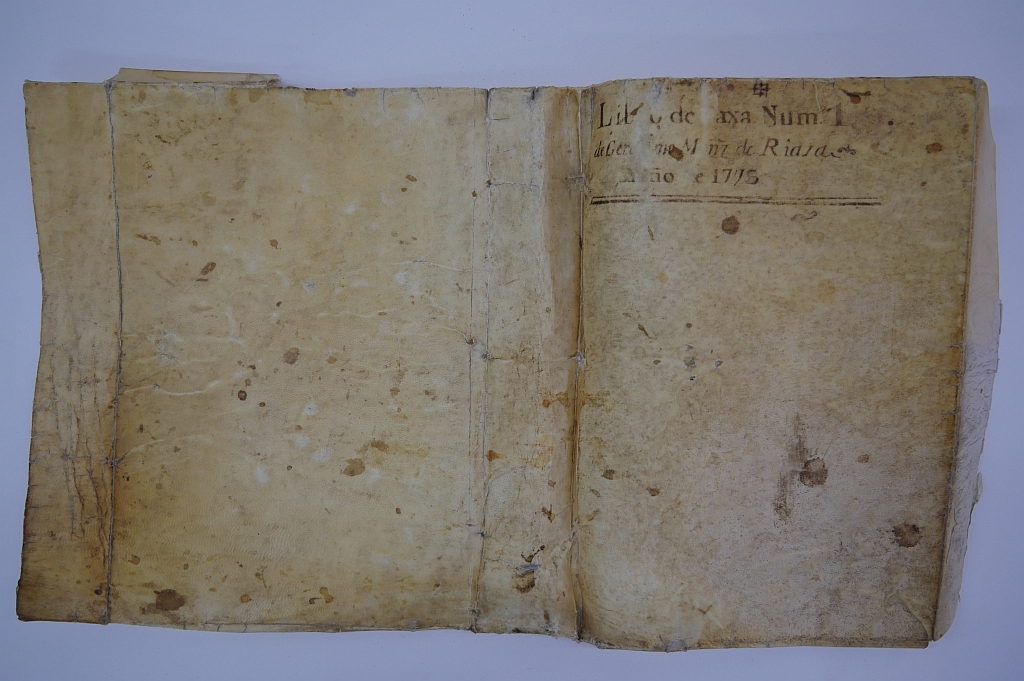 Libro de Caxa Num 1
de Geronimo Mñz de Riaza
Año de 1795